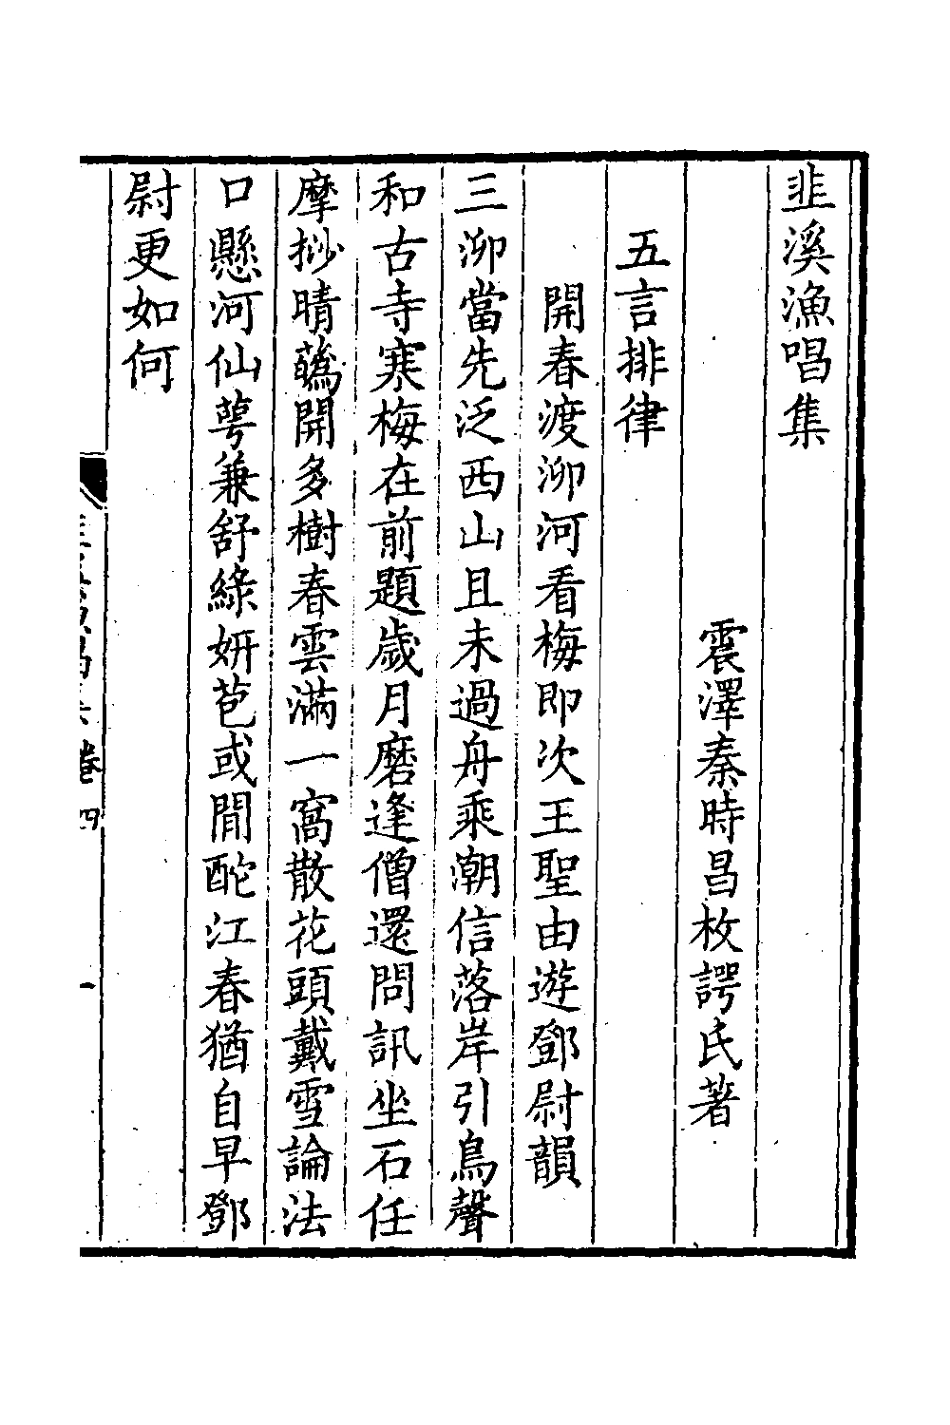 韭溪漁唱集
震澤秦時昌枚諤氏著
五言排律
開春渡泖河看梅即次王聖由遊鄧尉韻
三泖當先泛西山且未過舟乘潮信落岸引鳥聲
和古寺寒梅在前題歲月磨逢僧還問訊坐石任
摩挱晴蘤開多樹春雲滿一窩散花頭戴雪論法
口懸河仙萼兼舒綠妍芭或間酡江春猶自早鄧
尉更如何
卷四 一